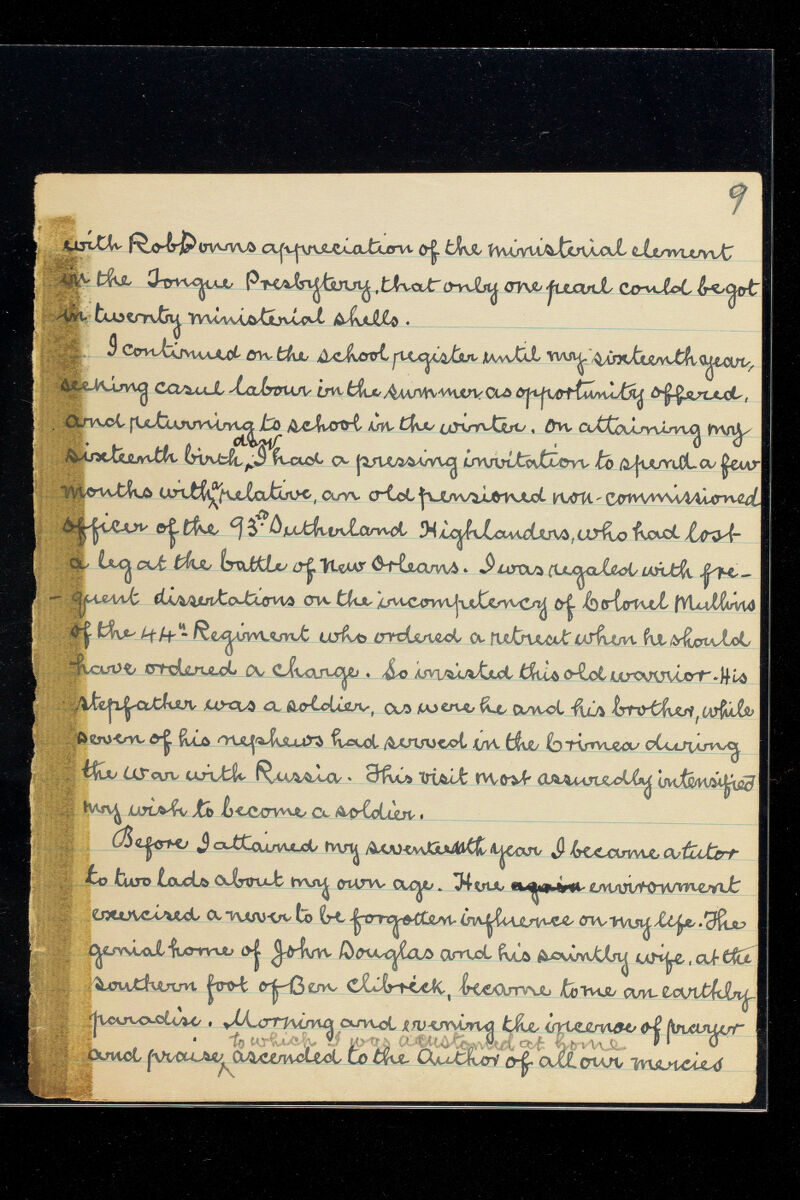 9
with Rob Donns appreciation of the ministerial element
in the Tongue Presbytery, that only one pearl could be got
in twenty ministerial shells.
I continued on the school register until my sixteenth year,
seeking casul labour in the summer as opportunity offered,
and returning to school in the winter. On attaining my
day
sixteenth birth ^ I had a pressing invitation to spend a few
months with ^a relative, an old pensioned non-commissioned
officer of the 93rd Sutherland Highlanders, who had lost
a leg at the battle of New Orleans. I was regaled with fre-
- quent dissertations on the incompetency of Colonel Mullins
of the 44th Regiment who ordered a retreat when he should
have ordered a charge. So insisted this old warrior. His
stepfather was a soldier, as were he and his brother, while
seven of his nephews had served in the Crimea during
the War with Russia. This visit most assuredly intensified
my wish to become a soldier.
Before I attained my seventeenth year I became a tutor
to two lads about my own age. Here again environment
exercised a never to be forgotten influence on my life. The
genial home of John Douglas and his saintly wife, at the
southern foot of Ben Clibreck, became to me an earthly
paradise. Morning and evening the incense of prayer
to which I was acustomed at home
and praise ^ ascended to the Author of all our mercies